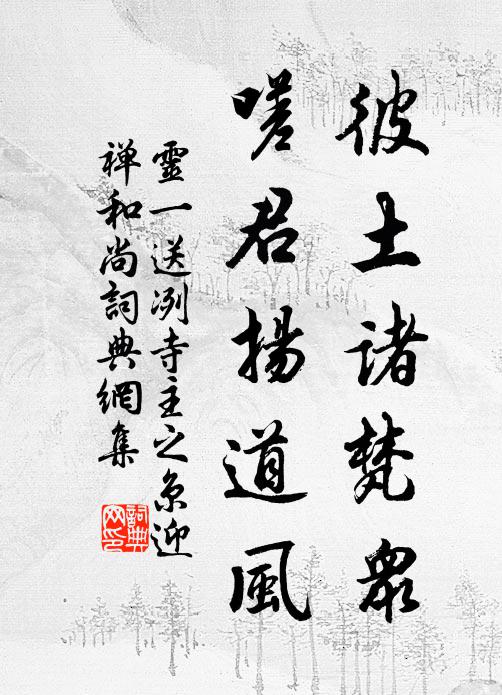 彼土诸梵眾
嗟君揚道風
靈一送冽寺主之京迎
禅和尚詞典網集
詞典
网印